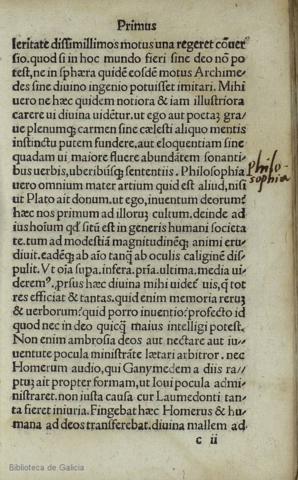 Primus
leritate dissimillimos motus una regeret cõuer
sio. quod si in hoc mundo fieri sine deo nõ po
test, ne in sphæra quidẽ eosdẽ motus Archime
des sine diuino ingenio potuisset imitari. Mihi
uero ne hæc quidem notiora & iam illustriora
carere ui diuina uidẽtur. ut ego aut poetaʒ gra
ue plenumqʒ carmen sine cælesti aliquo mentis
instinctu putem fundere, aut eloquentiam sine
quadam ui maiore fluere abundãtem sonanti
bus uerbis, uberibusqʒ sententiis. Philosophia
uero omnium mater artium quid est aliud, nisi
ut Plato ait donum. ut ego, inuentum deorum?
hæc nos primum ad illoruʒ cultum. deinde ad
ius hoĩum qd situ est in generis humani societa
te. tum ad modestiã magnitudineqʒ animi eru
diuit. eadẽqʒ ab aĩo tanqʒ ab oculis caliginẽ dis
pulit. Vt oĩa supa. infera. prĩa. ultima. media ui
derem?. prsus hæc diuina mihi uidet uis, q tot
res efficiat & tantas. quid enim memoria reruʒ
& uerborum? quid porro inuentio? profecto id
quod nec in deo quicqʒ maius intelligi potest.
Non enim ambrosia deos aut nectare aut iu
uentute pocula ministrãte lætari arbitror. nec
Homerum audio, qui Ganymedem a diis ra
ptuʒ ait propter formam, ut Ioui pocula admi
nistraret. non iusta causa cur Laumedonti tan
ta fieret iniuria. Fingebat hæc Homerus & hu
mana ad deos transferebat. diuina mallem ad
c ii
Philo-
sophia
Biblioteca de Galicia